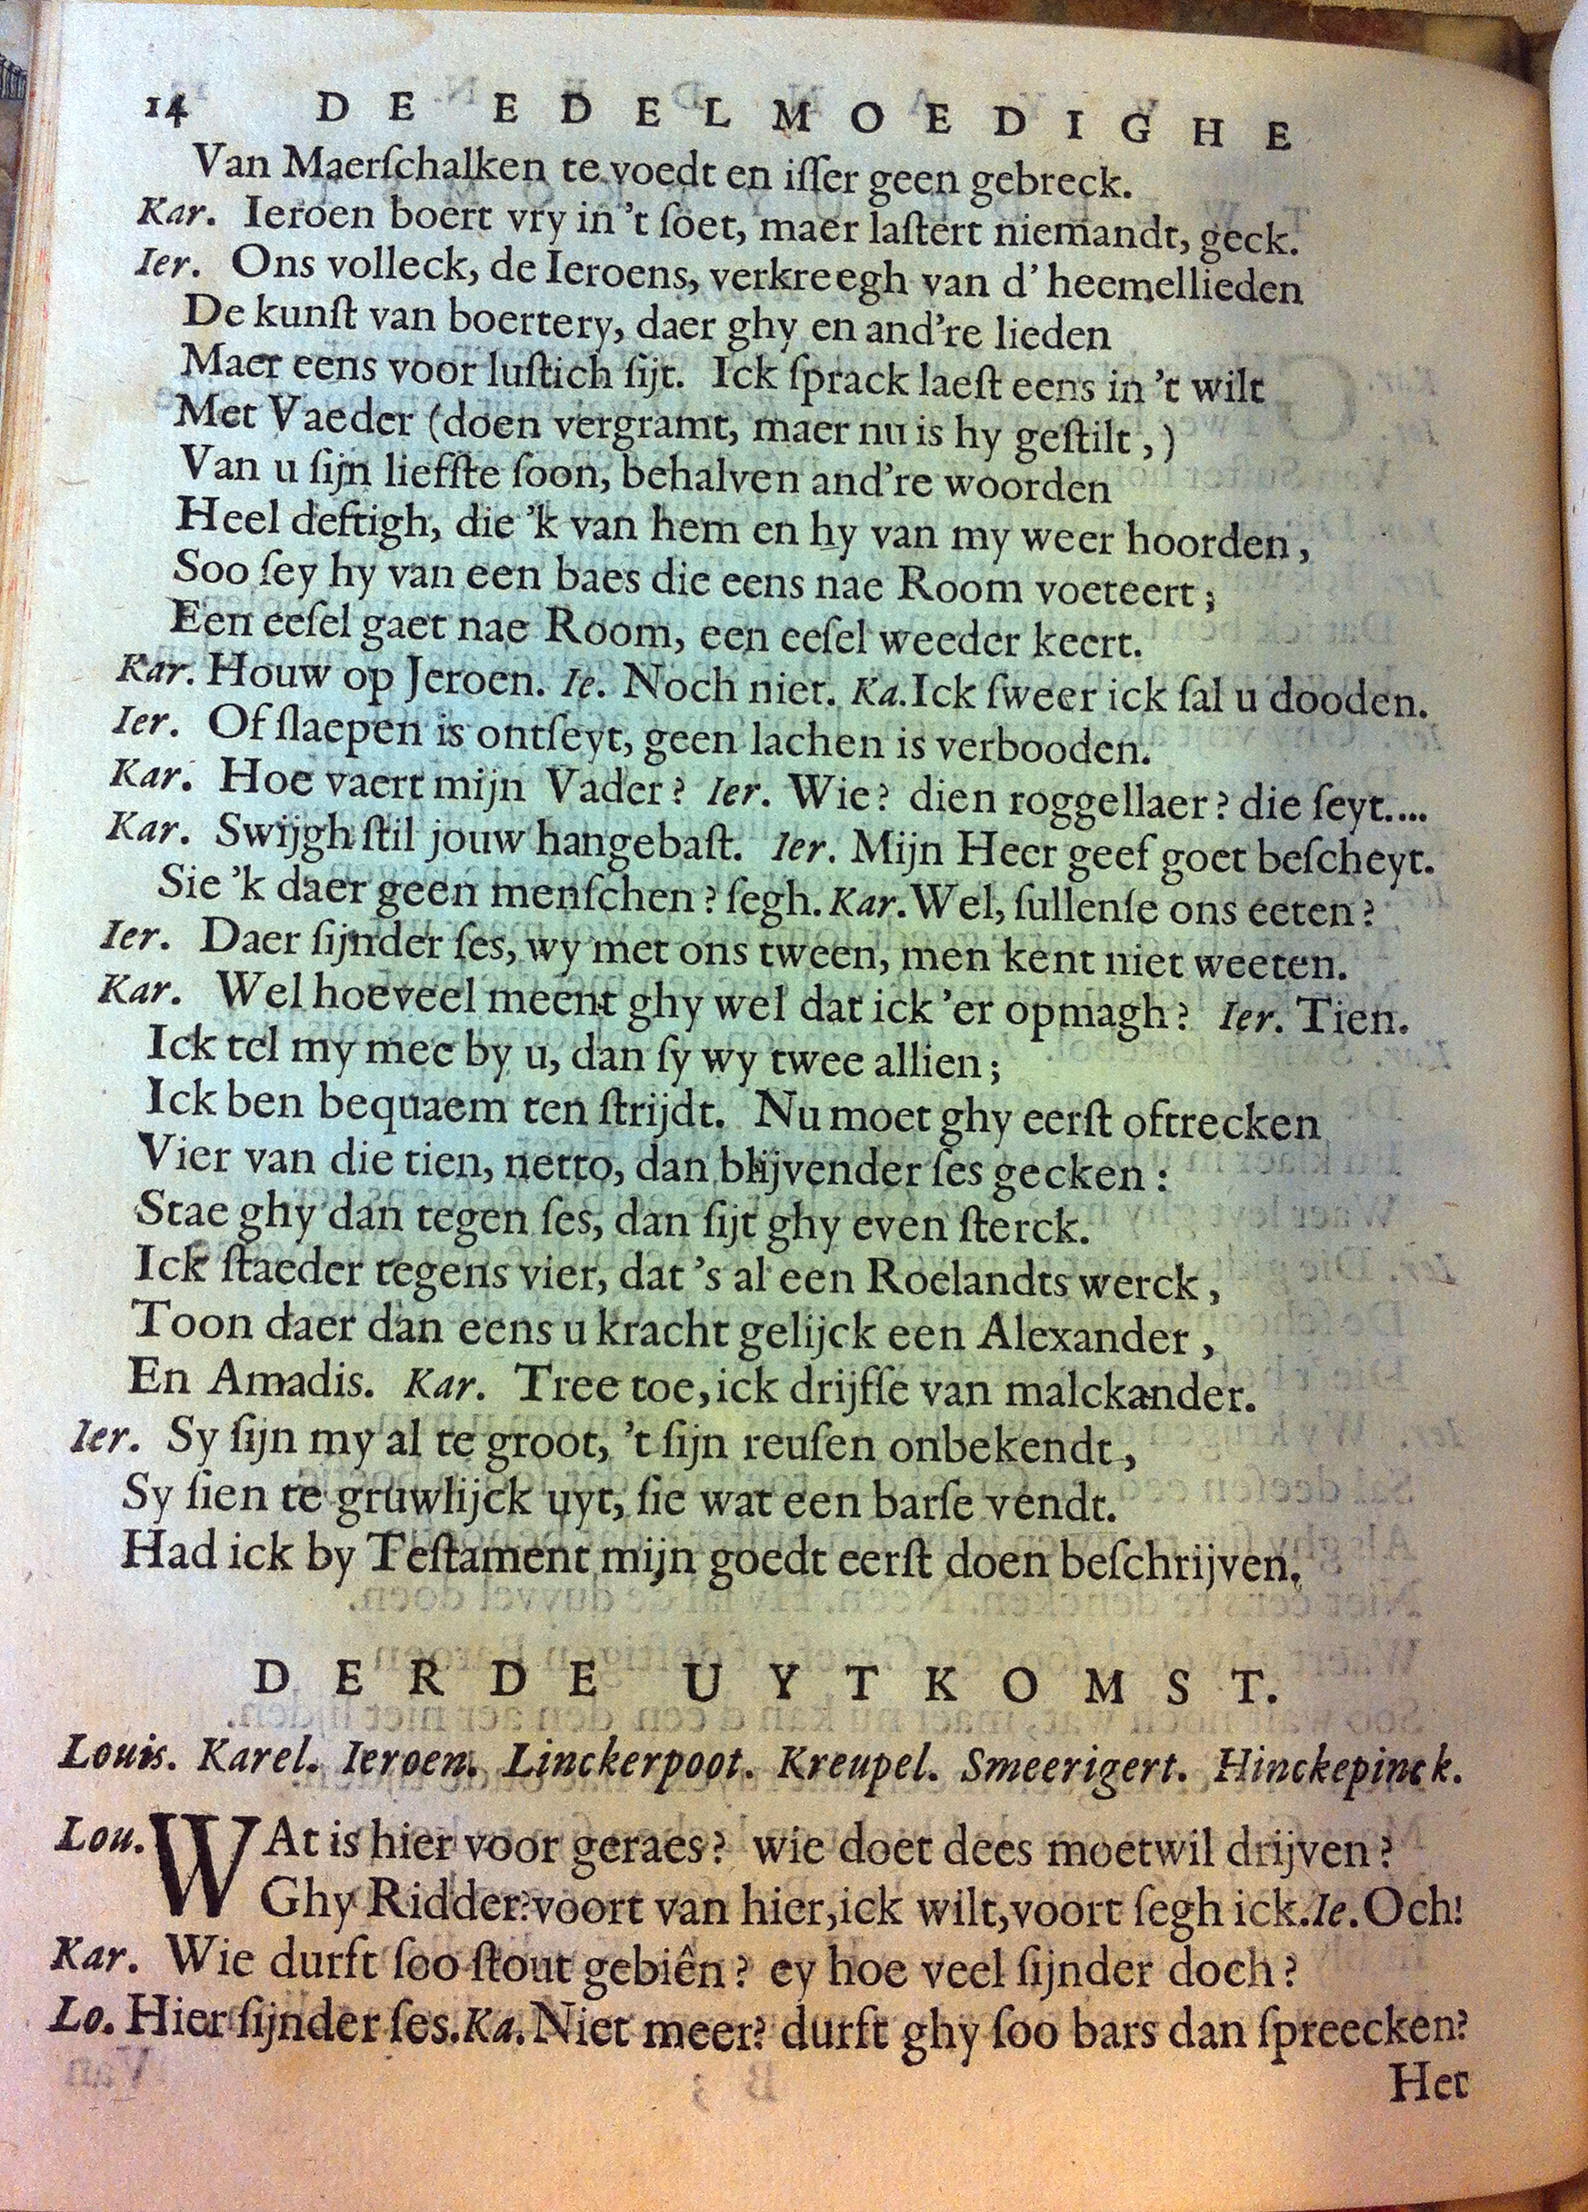 14 DE EDELMOEDIGHE
Van Maerſchalken te voedt en iſſer geen gebreck.
Kar. Ieroen boert vry in 't ſoet, maer laſtert niemandt, geck.
Ier. Ons volleck, de Ieroens, verkreegh van d' heemellieden
De kunſt van boertery, daer ghy en and're lieden
Maer eens voor luſtich ſijt. Ick ſprack laeſt eens in 't wilt
Met Vaeder (doen vergramt, maer nu is hy geſtilt,)
Van u ſijn liefſte ſoon, behalven and're woorden
Heel deftigh, die 'k van hem en hy van my weer hoorden,
Soo ſey hy van een baes die eens nae Room voeteert;
Een eeſel gaet nae Room, een eeſel weeder keert.
Kar. Houw op Jeroen. Ie. Noch niet. Ka. Ick ſweer ick ſal u dooden.
Ier. Of ſlaepen is ontſeyt, geen lachen is verbooden.
Kar. Hoe vaert mijn Vader? Ier. Wie? dien roggellaer? die ſeyt....
Kar. Swijgh ſtil jouw hangebaſt. Ier. Mijn Heer geef goet beſcheyt.
Sie 'k daer geen menſchen? ſegh. Kar. Wel, ſullenſe ons eeten?
Ier. Daer ſijnder ſes, wy met ons tween, men kent niet weeten.
Kar. Wel hoeveel meent ghy wel dat ick 'er opmagh? Ier. Tien.
Ick tel my mee by u, dan ſy wy twee allien;
Ick ben bequaem ten ſtrijdt. Nu moet ghy eerſt oftrecken
Vier van die tien, netto, dan blijvender ſes gecken:
Stae ghy dan tegen ſes, dan ſijt ghy even ſterck.
Ick ſtaeder tegens vier, dat 's al een Roelandts werck,
Toon daer dan eens u kracht gelijck een Alexander,
En Amadis. Kar. Tree toe, ick drijfſe van malckander.
Ier. Sy ſijn my al te groot, 't ſijn reuſen onbekendt,
Sy ſien te gruwlijck uyt, ſie wat een barſe vendt.
Had ick by Teſtament mijn goedt eerſt doen beſchrijven.
DERDE UYTKOMST.
Louis. Karel. Ieroen. Linckerpoot. Kreupel. Smeerigert. Hinckepinck.
Lou. WAt is hier voor geraes? wie doet dees moetwil drijven?
Ghy Ridder? voort van hier, ick wilt, voort ſegh ick. Ie. Och!
Kar. Wie durft ſoo ſtout gebiên? ey hoe veel ſijnder doch?
Lo. Hier ſijnder ſes. Ka. Niet meer? durft ghy ſoo bars dan ſpreecken?
Het